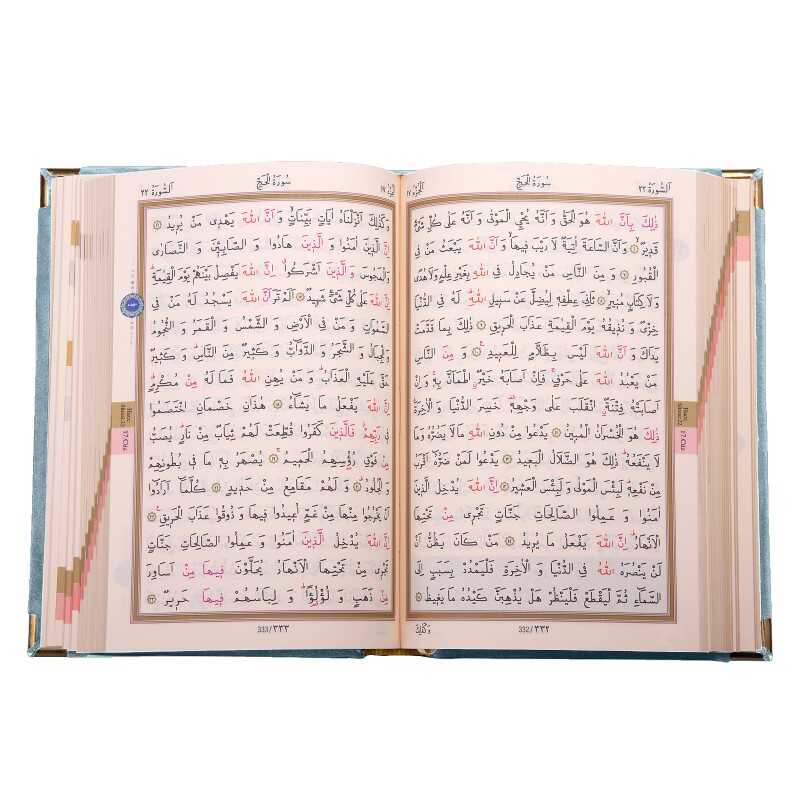 اَلسُّورَةُ ٢٢
سُورَةُ الْحَجِّ
اَلْجُزْءُ ١٧
ذٰلِكَ بِاَنَّ اللّٰهَ هُوَ الْحَقُّ وَ اَنَّهُ يُحْيِ الْمَوْتٰى وَ اَنَّهُ عَلٰى كُلِّ شَيْءٍ
قَدِيرٌ ﴿٦﴾ وَ اَنَّ السَّاعَةَ اٰتِيَةٌ لَا رَيْبَ فِيهَا وَ اَنَّ اللّٰهَ يَبْعَثُ مَنْ فِي
الْقُبُورِ ﴿٧﴾ وَ مِنَ النَّاسِ مَنْ يُجَادِلُ فِي اللّٰهِ بِغَيْرِ عِلْمٍ وَلَا هُدًى
وَلَا كِتَابٍ مُنِيرٍ ﴿٨﴾ ثَانِيَ عِطْفِهِ لِيُضِلَّ عَنْ سَبِيلِ اللّٰهِ لَهُ فِي الدُّنْيَا
خِزْيٌ وَ نُذِيقُهُ يَوْمَ الْقِيٰمَةِ عَذَابَ الْحَرِيقِ ﴿٩﴾ ذٰلِكَ بِمَا قَدَّمَتْ
يَدَاكَ وَ اَنَّ اللّٰهَ لَيْسَ بِظَلَّامٍ لِلْعَبِيدِ ﴿١٠﴾ وَ مِنَ النَّاسِ
مَنْ يَعْبُدُ اللّٰهَ عَلٰى حَرْفٍ فَاِنْ اَصَابَهُ خَيْرٌ اطْمَاَنَّ بِهِ وَاِنْ
اَصَابَتْهُ فِتْنَةٌ انْقَلَبَ عَلٰى وَجْهِهِ خَسِرَ الدُّنْيَا وَ الْاٰخِرَةَ
ذٰلِكَ هُوَ الْخُسْرَانُ الْمُبِينُ ﴿١١﴾ يَدْعُوا مِنْ دُونِ اللّٰهِ مَا لَا يَضُرُّهُ وَمَا
لَا يَنْفَعُهُ ذٰلِكَ هُوَ الضَّلَالُ الْبَعِيدُ ﴿١٢﴾ يَدْعُوا لَمَنْ ضَرُّهُ اَقْرَبُ
مِنْ نَفْعِهِ لَبِئْسَ الْمَوْلٰى وَ لَبِئْسَ الْعَشِيرُ ﴿١٣﴾ اِنَّ اللّٰهَ يُدْخِلُ الَّذِينَ
اٰمَنُوا وَ عَمِلُوا الصَّالِحَاتِ جَنَّاتٍ تَجْرِي مِنْ تَحْتِهَا
الْاَنْهَارُ اِنَّ اللّٰهَ يَفْعَلُ مَا يُرِيدُ ﴿١٤﴾ مَنْ كَانَ يَظُنُّ اَنْ
لَنْ يَنْصُرَهُ اللّٰهُ فِي الدُّنْيَا وَ الْاٰخِرَةِ فَلْيَمْدُدْ بِسَبَبٍ اِلَى
السَّمَاءِ ثُمَّ لْيَقْطَعْ فَلْيَنْظُرْ هَلْ يُذْهِبَنَّ كَيْدُهُ مَا يَغِيظُ ﴿١٥﴾
332/٣٣٢
وَكَذٰلِكَ
اَلسُّورَةُ ٢٢
سُورَةُ الْحَجِّ
وَ كَذٰلِكَ اَنْزَلْنَاهُ اٰيَاتٍ بَيِّنَاتٍ وَ اَنَّ اللّٰهَ يَهْدِي مَنْ يُرِيدُ ﴿١٦﴾
اِنَّ الَّذِينَ اٰمَنُوا وَ الَّذِينَ هَادُوا وَ الصَّابِئِينَ وَ النَّصَارٰى
وَ الْمَجُوسَ وَ الَّذِينَ اَشْرَكُوا اِنَّ اللّٰهَ يَفْصِلُ بَيْنَهُمْ يَوْمَ الْقِيٰمَةِ
اِنَّ اللّٰهَ عَلٰى كُلِّ شَيْءٍ شَهِيدٌ ﴿١٧﴾ اَلَمْ تَرَ اَنَّ اللّٰهَ يَسْجُدُ لَهُ مَنْ فِي
السَّمٰوَاتِ وَ مَنْ فِي الْاَرْضِ وَ الشَّمْسُ وَ الْقَمَرُ وَ النُّجُومُ
وَ الْجِبَالُ وَ الشَّجَرُ وَ الدَّوَابُّ وَ كَثِيرٌ مِنَ النَّاسِ وَ كَثِيرٌ
حَقَّ عَلَيْهِ الْعَذَابُ وَ مَنْ يُهِنِ اللّٰهُ فَمَا لَهُ مِنْ مُكْرِمٍ
اِنَّ اللّٰهَ يَفْعَلُ مَا يَشَاءُ ﴿١٨﴾ هٰذَانِ خَصْمَانِ اخْتَصَمُوا
فِي رَبِّهِمْ فَالَّذِينَ كَفَرُوا قُطِّعَتْ لَهُمْ ثِيَابٌ مِنْ نَارٍ يُصَبُّ
مِنْ فَوْقِ رُؤُسِهِمُ الْحَمِيمُ ﴿١٩﴾ يُصْهَرُ بِهِ مَا فِي بُطُونِهِمْ
وَ الْجُلُودُ ﴿٢٠﴾ وَ لَهُمْ مَقَامِعُ مِنْ حَدِيدٍ ﴿٢١﴾ كُلَّمَا اَرَادُوا
اَنْ يَخْرُجُوا مِنْهَا مِنْ غَمٍّ اُعِيدُوا فِيهَا وَ ذُوقُوا عَذَابَ الْحَرِيقِ ﴿٢٢﴾
اِنَّ اللّٰهَ يُدْخِلُ الَّذِينَ اٰمَنُوا وَ عَمِلُوا الصَّالِحَاتِ جَنَّاتٍ
تَجْرِي مِنْ تَحْتِهَا الْاَنْهَارُ يُحَلَّوْنَ فِيهَا مِنْ اَسَاوِرَ
مِنْ ذَهَبٍ وَ لُؤْلُؤًا وَ لِبَاسُهُمْ فِيهَا حَرِيرٌ ﴿٢٣﴾
333/٣٣٣